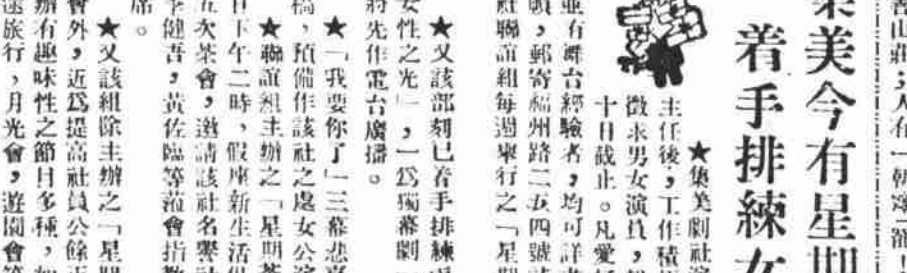 善山莊；人有一
集美今有星期
着手排練女
★集美劇社
主任後，工作積
徵求男女演員，
十日截止。凡愛
並有舞台經驗者，均可詳
郵寄福州路二五四號
社聯誼組每週舉行之「星期
★又該部刻已着手排練
女性之光」，一爲獨幕劇
將先作電台廣播。
★「我要你了」三幕悲喜
預備作該社之處女公演
★聯誼組主辦之「星期茶
日下午二時，假座新生活俱
五次茶會，邀請該社名譽社
李健吾，黃佐臨等蒞會指教
席。
★又該組除主辦之「星期
會外，近爲提高社員公餘正
辦有趣味性之節目多種，如
遠旅行，月光會，遊園會等